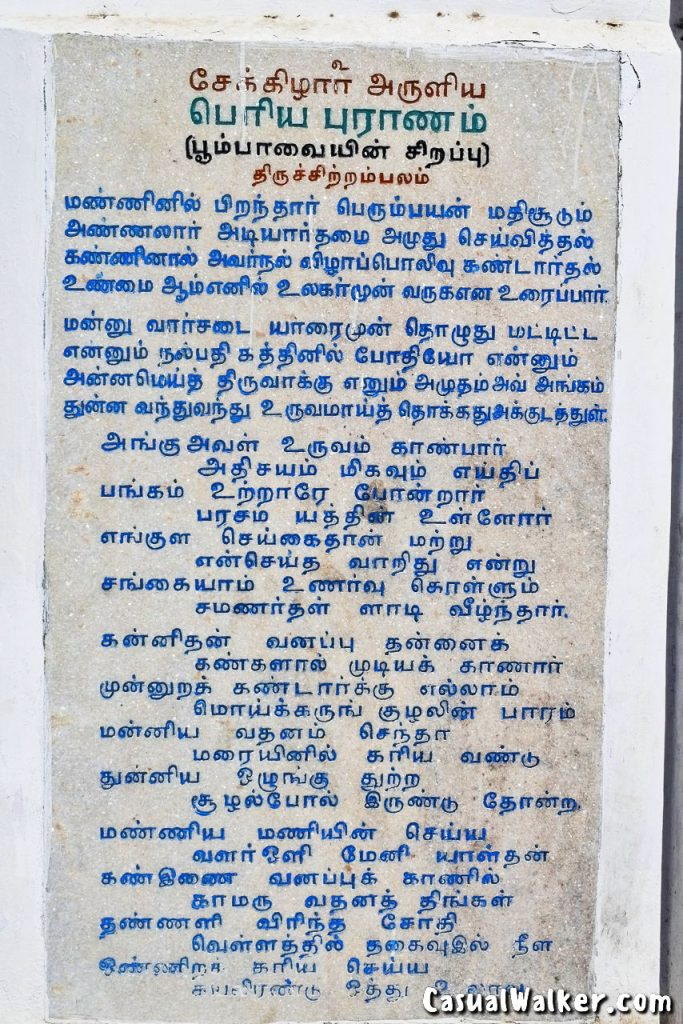 சேக்கிழார் அருளிய
பெரிய புராணம்
(பூம்பாவையின் சிறப்பு)
திருச்சிற்றம்பலம்
மண்ணினில் பிறந்தார் பெரும்பயன் மதிசூடும்
அண்ணலார் அடியார்தமை அமுது செய்வித்தல்
கண்ணினால் அவர்நல் விழாப்பொலிவு கண்டார்தல்
உண்மை ஆம்எனில் உலகர்முன் வருகஎன உரைப்பார்.
மன்னு வார்சடை யாரைமுன் தொழுது மட்டிட்ட
என்னும் நல்பதி கத்தினில் போதியோ என்னும்
அன்னமெய்த் திருவாக்கு எனும் அமுதம்அவ் அங்கம்
துன்ன வந்துவந்து உருவமாய்த் தொக்கதுஅக்குடத்துள்.
அங்கு அவள் உருவம் காண்பார்
அதிசயம் மிகவும் எய்திப்
பங்கம் உற்றாரே போன்றார்
பரசம யத்தின் உள்ளோர்
எங்குள செய்கைதான் மற்று
என்செய்த வாறிது என்று
சங்கையாம் உணர்வு கொள்ளும்
சமணர்தள் ளாடி வீழ்ந்தார்.
கன்னிதன் வனப்பு தன்னைக்
கண்களால் முடியக் காணார்
முன்னுறக் கண்டார்க்கு எல்லாம்
மொய்க்கருங் குழலின் பாரம்
மன்னிய வதனம் செந்தா
மரையினில் கரிய வண்டு
துன்னிய ஒழுங்கு துற்ற
சூழல்போல் இருண்டு தோன்ற.
மண்ணிய மணியின் செய்ய
வளர்ஒளி மேனி யாள்தன்
கண்இணை வனப்புக் காணில்
காமரு வதனத் திங்கள்
தண்ணளி விரிந்த சோதி
வெள்ளத்தில் தகைவுஇல் நீள
ஒண்ணிறக் கரிய செய்ய
கயலிரண்டு ஒத்து
CasualWalker.com